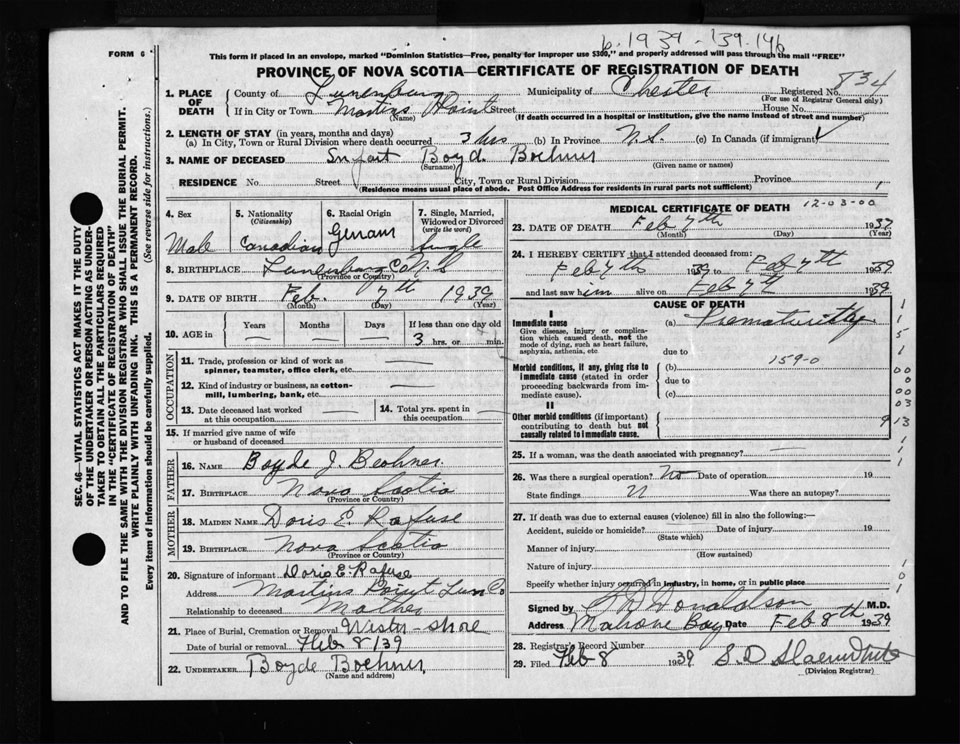 6-1939-139-146
FORM 6
This form if placed in an envelope, marked "Dominion Statistics—Free, penalty for improper use $300," and properly addressed will pass through the mail "FREE"
PROVINCE OF NOVA SCOTIA—CERTIFICATE OF REGISTRATION OF DEATH
1. PLACE OF DEATH County of Lunenburg Municipality of Chester Registered No. 734
(For use of Registrar General only)
If in City or Town Martins Point Street House No.
(Name) (If death occurred in a hospital or institution, give the name instead of street and number)
2. LENGTH OF STAY (in years, months and days)
(a) In City, Town or Rural Division where death occurred 3 hrs (b) In Province N.S. (c) In Canada (if immigrant)
3. NAME OF DECEASED Infant Boyd Boehner
(Surname) (Given name or names)
RESIDENCE No. Street City, Town or Rural Division Province
(Residence means usual place of abode. Post Office Address for residents in rural parts not sufficient)
SEC. 46—VITAL STATISTICS ACT MAKES IT THE DUTY
OF THE UNDERTAKER OR PERSON ACTING AS UNDER-
TAKER TO OBTAIN ALL THE PARTICULARS REQUIRED
IN THE "CERTIFICATE OF REGISTRATION OF DEATH"
AND TO FILE THE SAME WITH THE DIVISION REGISTRAR WHO SHALL ISSUE THE BURIAL PERMIT.
WRITE PLAINLY WITH UNFADING INK. THIS IS A PERMANENT RECORD.
Every item of information should be carefully supplied. (See reverse side for instructions.)
4. Sex 5. Nationality (Citizenship) 6. Racial Origin 7. Single, Married, Widowed or Divorced (write the word)
Male Canadian German Single
8. BIRTHPLACE Lunenburg Co N.S
(Province or Country)
9. DATE OF BIRTH Feb. 7th 1939
(Month) (Day) (Year)
10. AGE in Years Months Days If less than one day old
3 hrs. or min.
OCCUPATION
11. Trade, profession or kind of work as
spinner, teamster, office clerk, etc.
12. Kind of industry or business, as cotton-
mill, lumbering, bank, etc.
13. Date deceased last worked at this occupation 14. Total yrs. spent in this occupation
15. If married give name of wife
or husband of deceased
FATHER
16. NAME Boyde J. Beohner
17. BIRTHPLACE Nova Scotia
(Province or Country)
MOTHER
18. MAIDEN NAME Doris E. Rafuse
19. BIRTHPLACE Nova Scotia
(Province or Country)
20. Signature of informant Doris E Rafuse
Address Martins Point Lun Co
Relationship to deceased Mother
21. Place of Burial, Cremation or Removal Wester-shore
Date of burial or removal Feb 8/39
22. UNDERTAKER Boyde Boehner
(Name and address)
MEDICAL CERTIFICATE OF DEATH
12-03-00
23. DATE OF DEATH Feb 7th 1939
(Month) (Day) (Year)
24. I HEREBY CERTIFY that I attended deceased from:
Feb 7th 1939 to Feb 7th 1939
and last saw him alive on Feb 7th 1939
CAUSE OF DEATH
I
Immediate cause (a) Prematurity
Give disease, injury or complica-
tion which caused death, not the
mode of dying, such as heart failure,
asphyxia, asthenia, etc. due to
159-0
Morbid conditions, if any, giving rise to (b)
immediate cause (stated in order due to
proceeding backwards from im-
mediate cause). (c)
II
Other morbid conditions (if important)
contributing to death but not
causally related to immediate cause.
25. If a woman, was the death associated with pregnancy?
26. Was there a surgical operation? No Date of operation 19
State findings N Was there an autopsy?
27. If death was due to external causes (violence) fill in also the following:
Accident, suicide or homicide? Date of injury 19
(State which)
Manner of injury
(How sustained)
Nature of injury
Specify whether injury occurred in industry, in home, or in public place
Signed by Donaldson M.D.
Address Mahone Bay Date Feb 8th 1939
28. Registrar's Record Number
29. Filed Feb 8 1939 S. D
(Division Registrar)